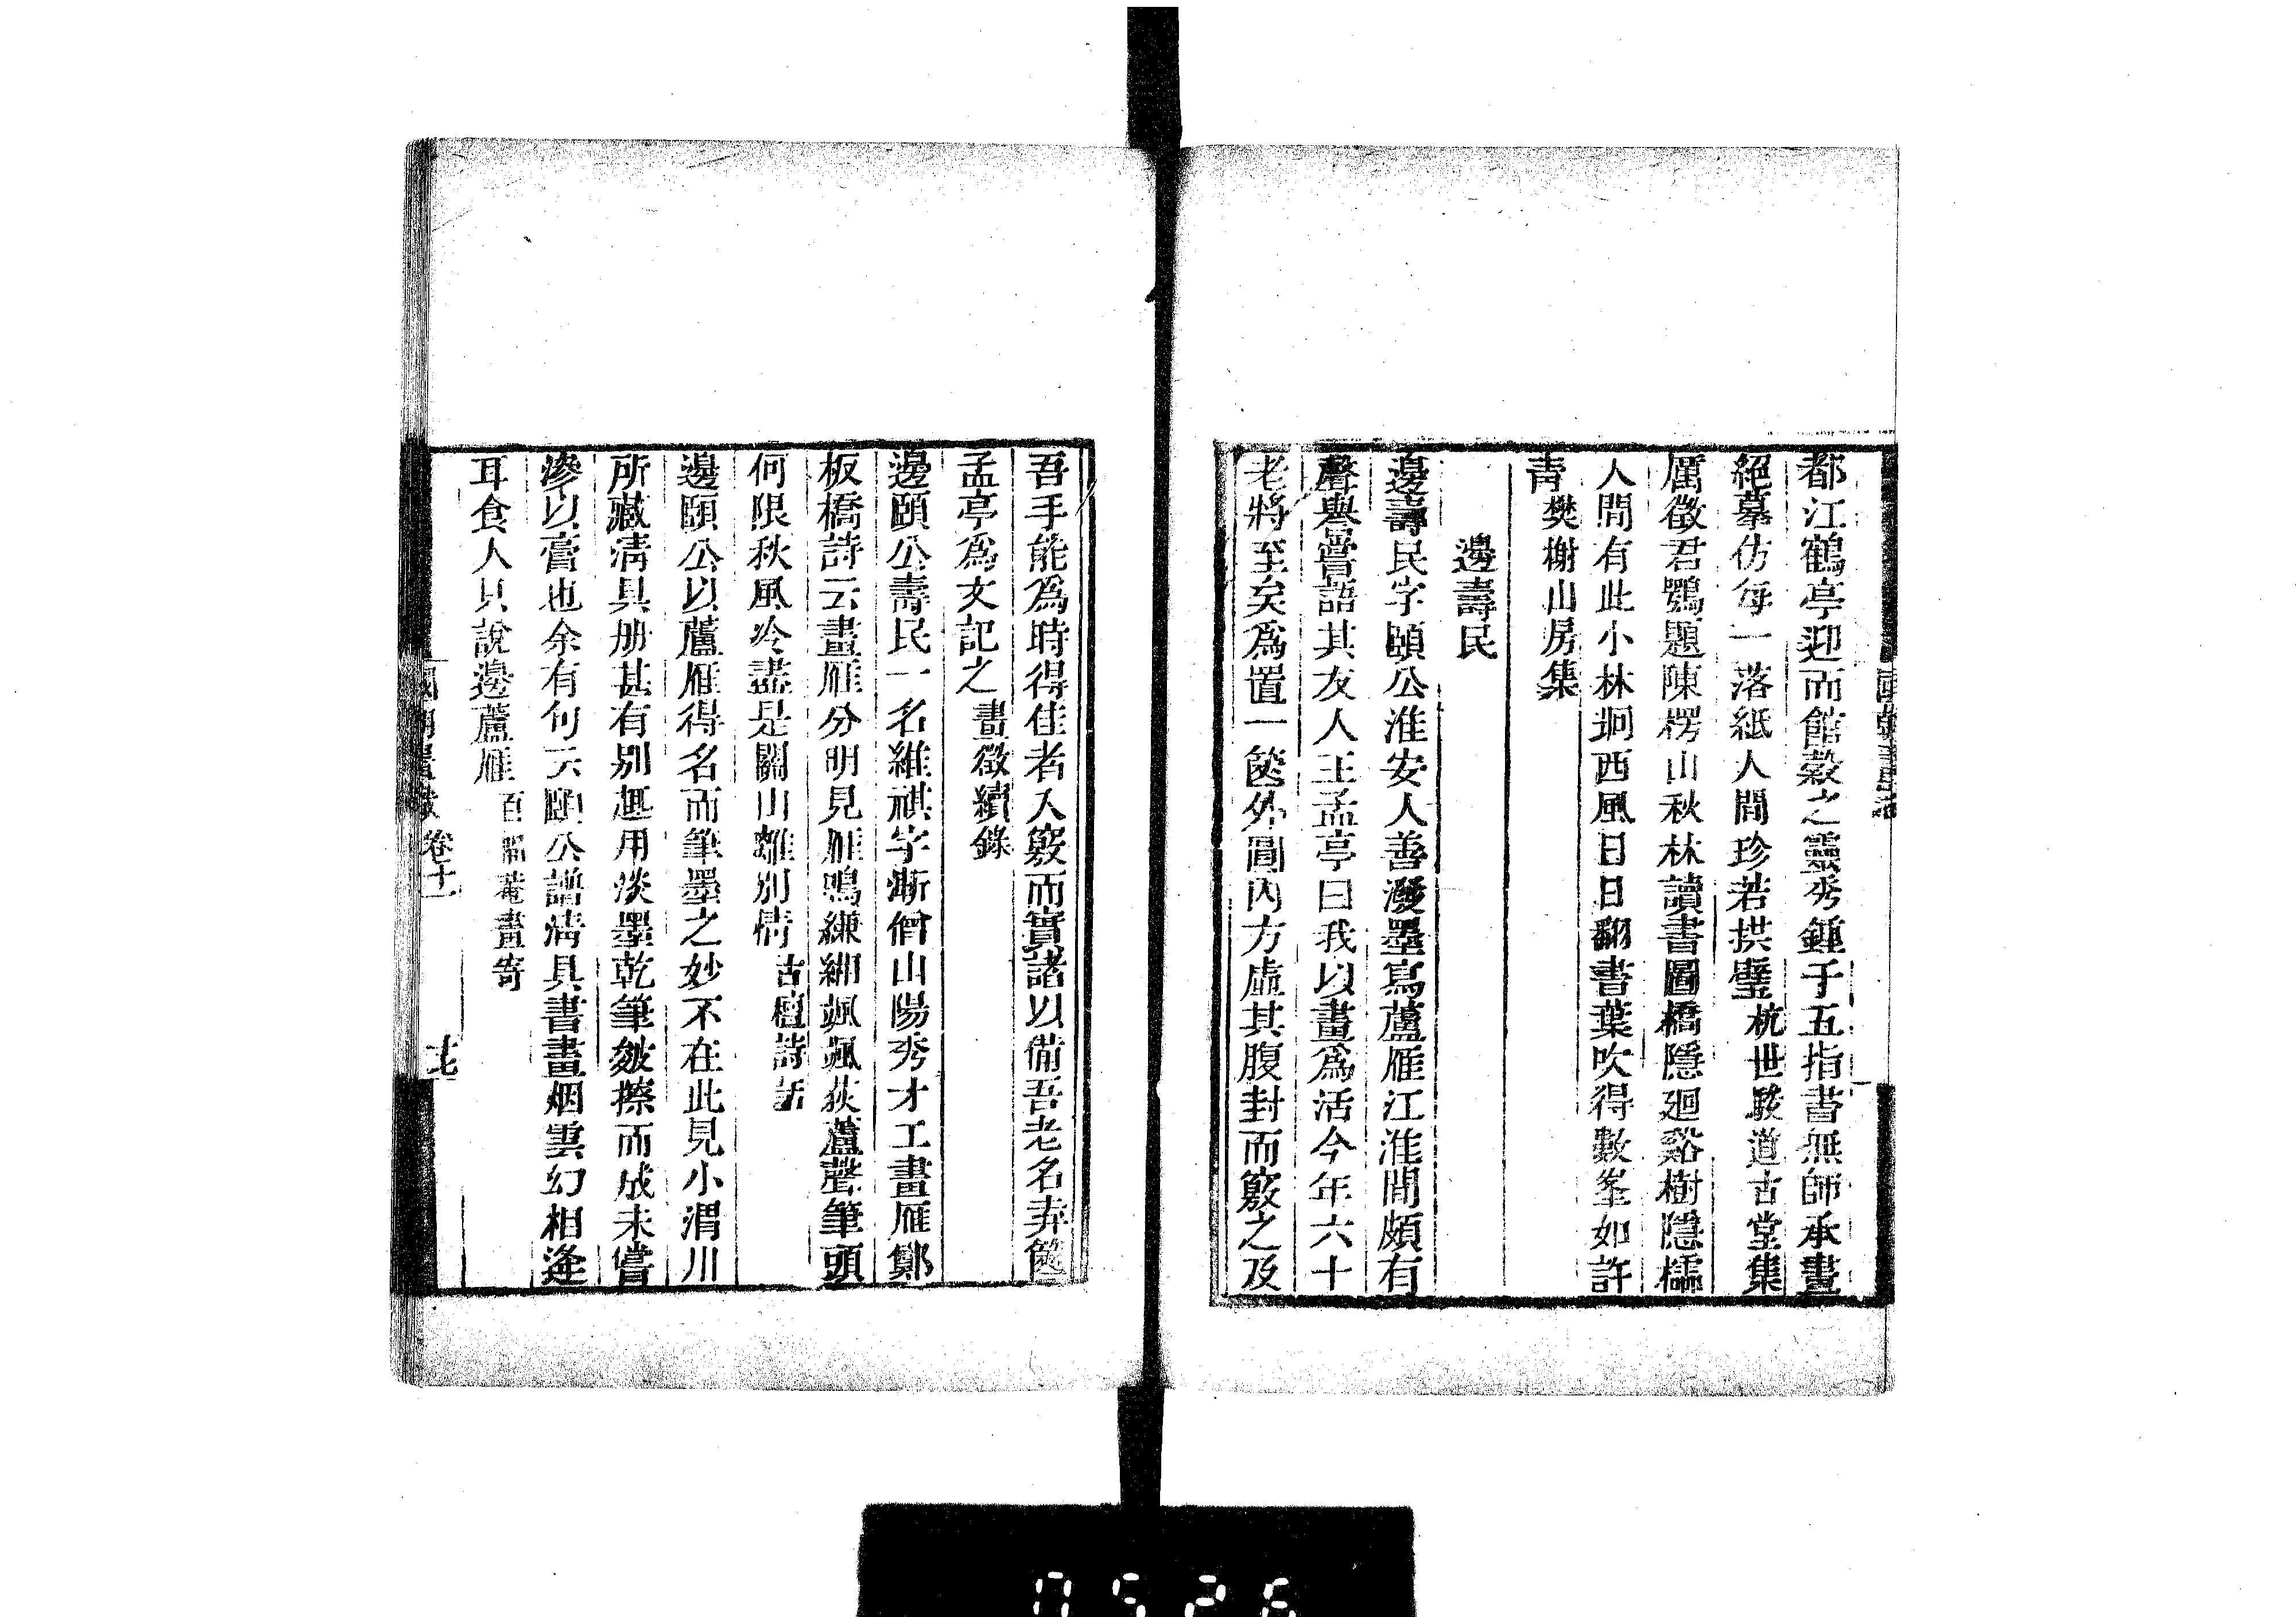 都江鶴亭迎而館穀之靈秀鍾于五指書無師承畫
絕摹仿每一落紙人間珍若拱璧杭世駿道古堂集
厲徵君鶚題陳楞山秋林讀書圖橋隱廻谿樹隱櫺
人間有此小林坰西風日日翻書葉吹得數峯如許
靑樊榭山房集
邊壽民
邊壽民字頤公淮安人善潑墨寫蘆雁江淮間頗有
聲譽嘗語其友人王孟亭曰我以畫爲活今年六十
老將至矣爲置一篋外圓內方虛其腹封而竅之及
吾手能爲時得佳者入竅而實諸以備吾老名弆篋
孟亭爲文記之畫徵續錄
邊頤公壽民一名維祺字漸僧山陽秀才工畫雁鄭
板橋詩云畫雁分明見雁鳴縑緗颯颯荻蘆聲筆頭
何限秋風冷盡是關山離別情古檀詩話
邊頤公以蘆雁得名而筆墨之妙不在此見小渭川
所藏淸具册甚有别趣用淡墨乾筆皴擦而成未嘗
滲以膏也余有句云頤公譜淸具書畫烟雲幻相逢
耳食人只說邊蘆雁百畫寄
卷十一
七